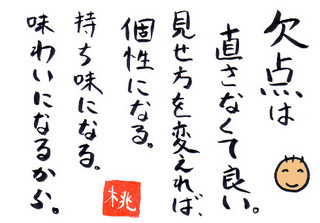 欠点は
直さなくて良い。
見せ方を変えれば、
個性になる。
持ち味になる。
味わいになるから。
桃